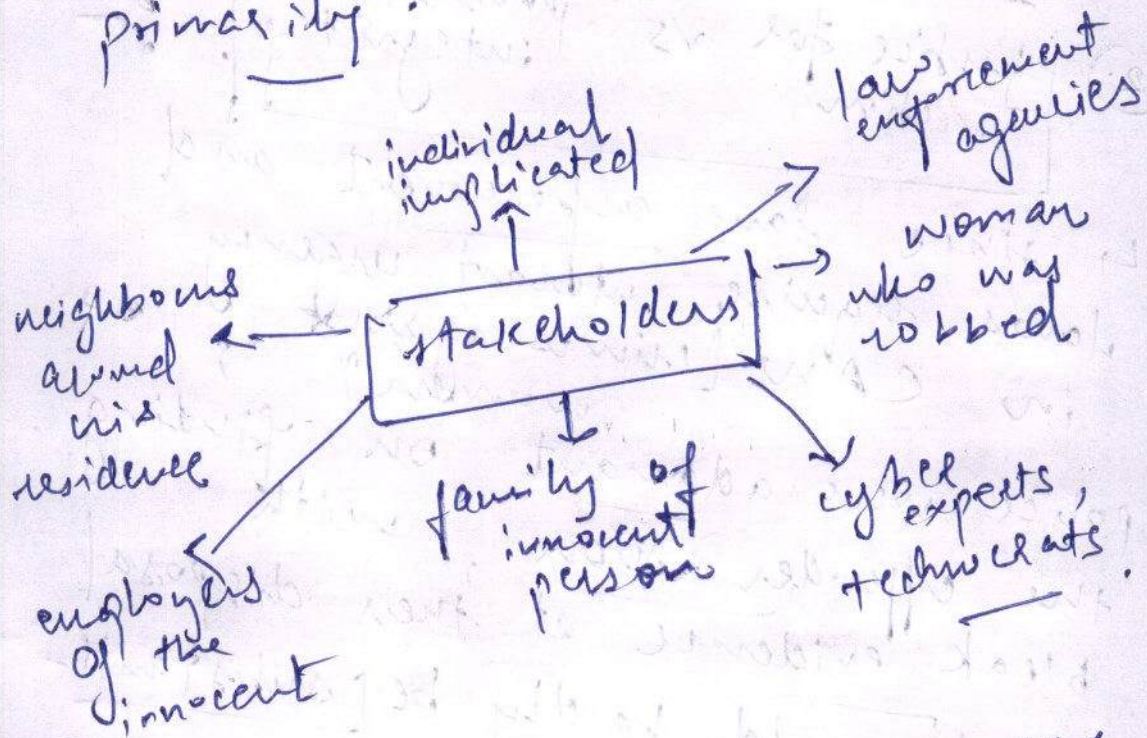 primarily.
individual
implicated
law
enforcement
agencies
woman
who was
robbed
stakeholders
neighbours
around
his
residence
family of
innocent
person
cyber
experts,
technocrats.
employers
of the
innocent